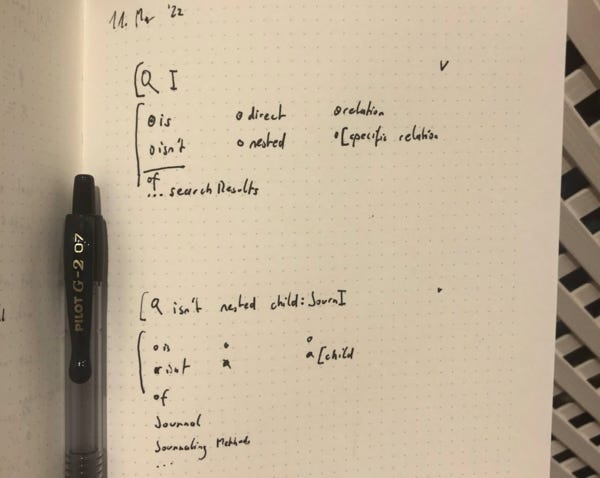 11. Mar '22
[Q I
v
o is o direct o relation
o isn't o nested o [specific relation
of
... searchResults
[Q isn't nested child: JournI
o is
isn't [child
of
Journal
Journaling Methods
...
PILOT G-2 07